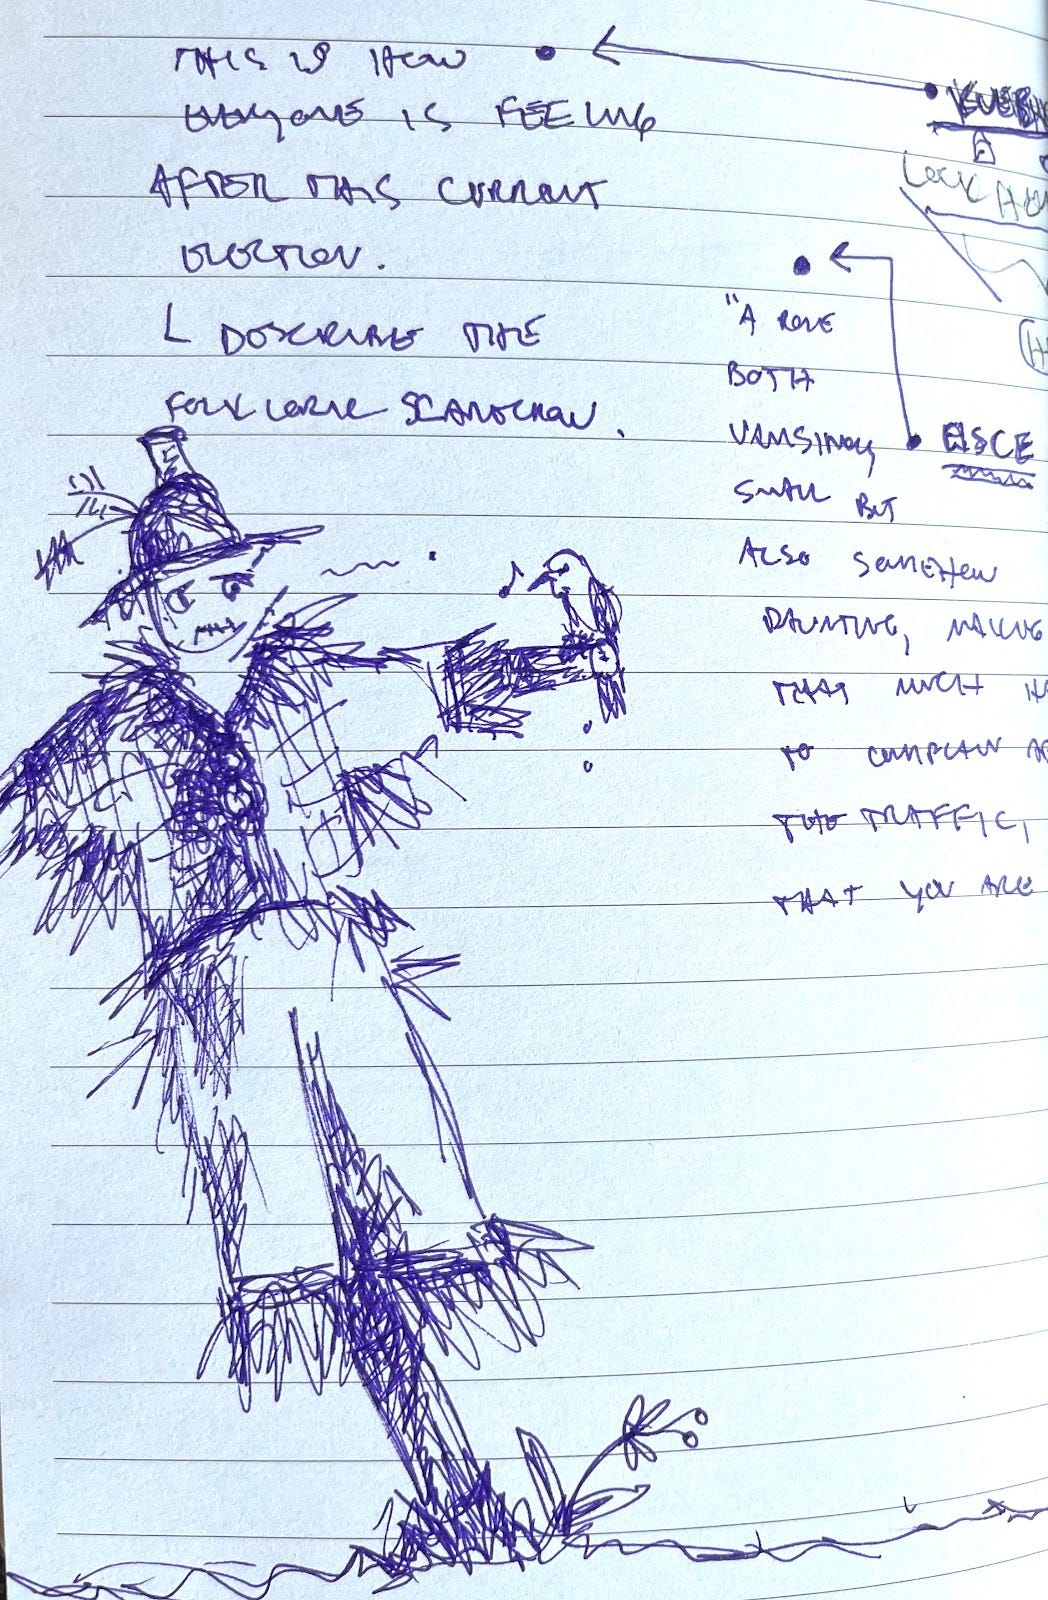 THIS IS HOW
EVERYONE IS FEELING
AFTER THIS CURRENT
ELECTION.
L DESCRIBE THE
FOLKLORIC SCARECROW.
LOCK
"A ROLE
BOTH
SMALL BUT
ALSO SOMEHOW
DAUNTING, MAKING
THAT MUCH
TO COMPLAIN
THE TRAFFIC,
THAT YOU ARE